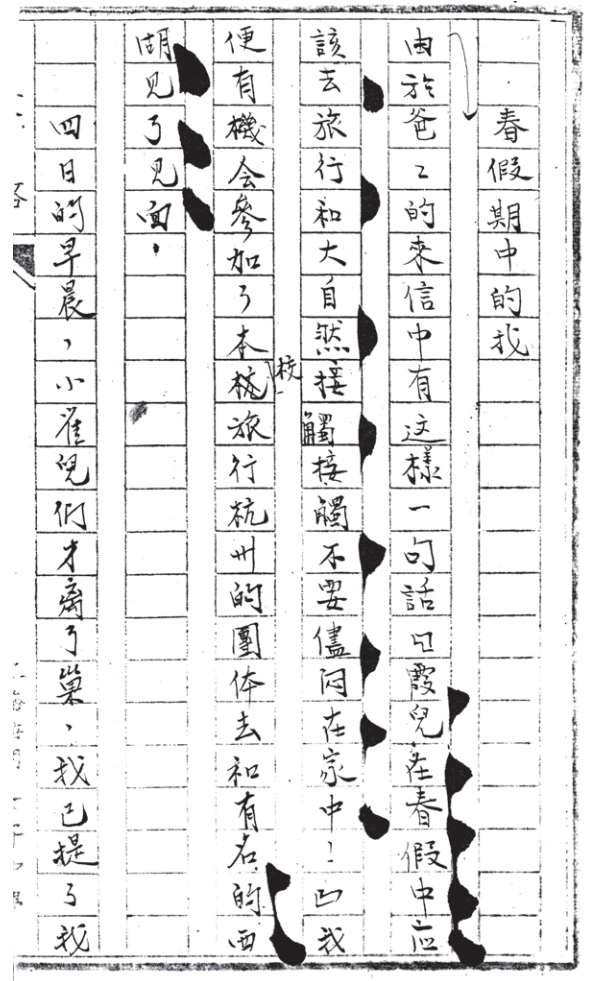 春假期中的我
由於爸〻的來信中有这樣一句話「霞兒在春假中应
該去旅行和大自然接觸接觸不要儘闷在家中！」我
便有機会參加了本校旅行杭州的團体去和有名的西
校
湖见了见面，
四日的早晨，小雀兒们才离了巢，我已提了我